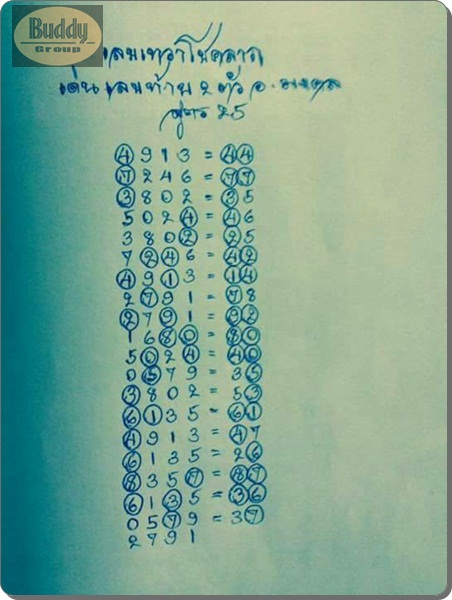 Buddy
Group
เด่น เลขท้าย 2 ตัว
สูตร 25
4 9 1 3 = 44
7 2 4 6 = 77
3 8 0 2 = 35
5 0 2 4 = 46
3 8 0 2 = 25
7 2 4 6 = 42
4 9 1 3 = 14
2 7 9 1 = 78
2 7 9 1 = 92
1 6 8 0 = 80
5 0 2 4 = 40
0 5 7 9 = 35
3 8 0 2 = 53
6 1 3 5 = 61
4 9 1 3 = 47
6 1 3 5 = 26
8 3 5 7 = 87
6 1 3 5 = 36
0 5 7 9 = 37
2 7 9 1